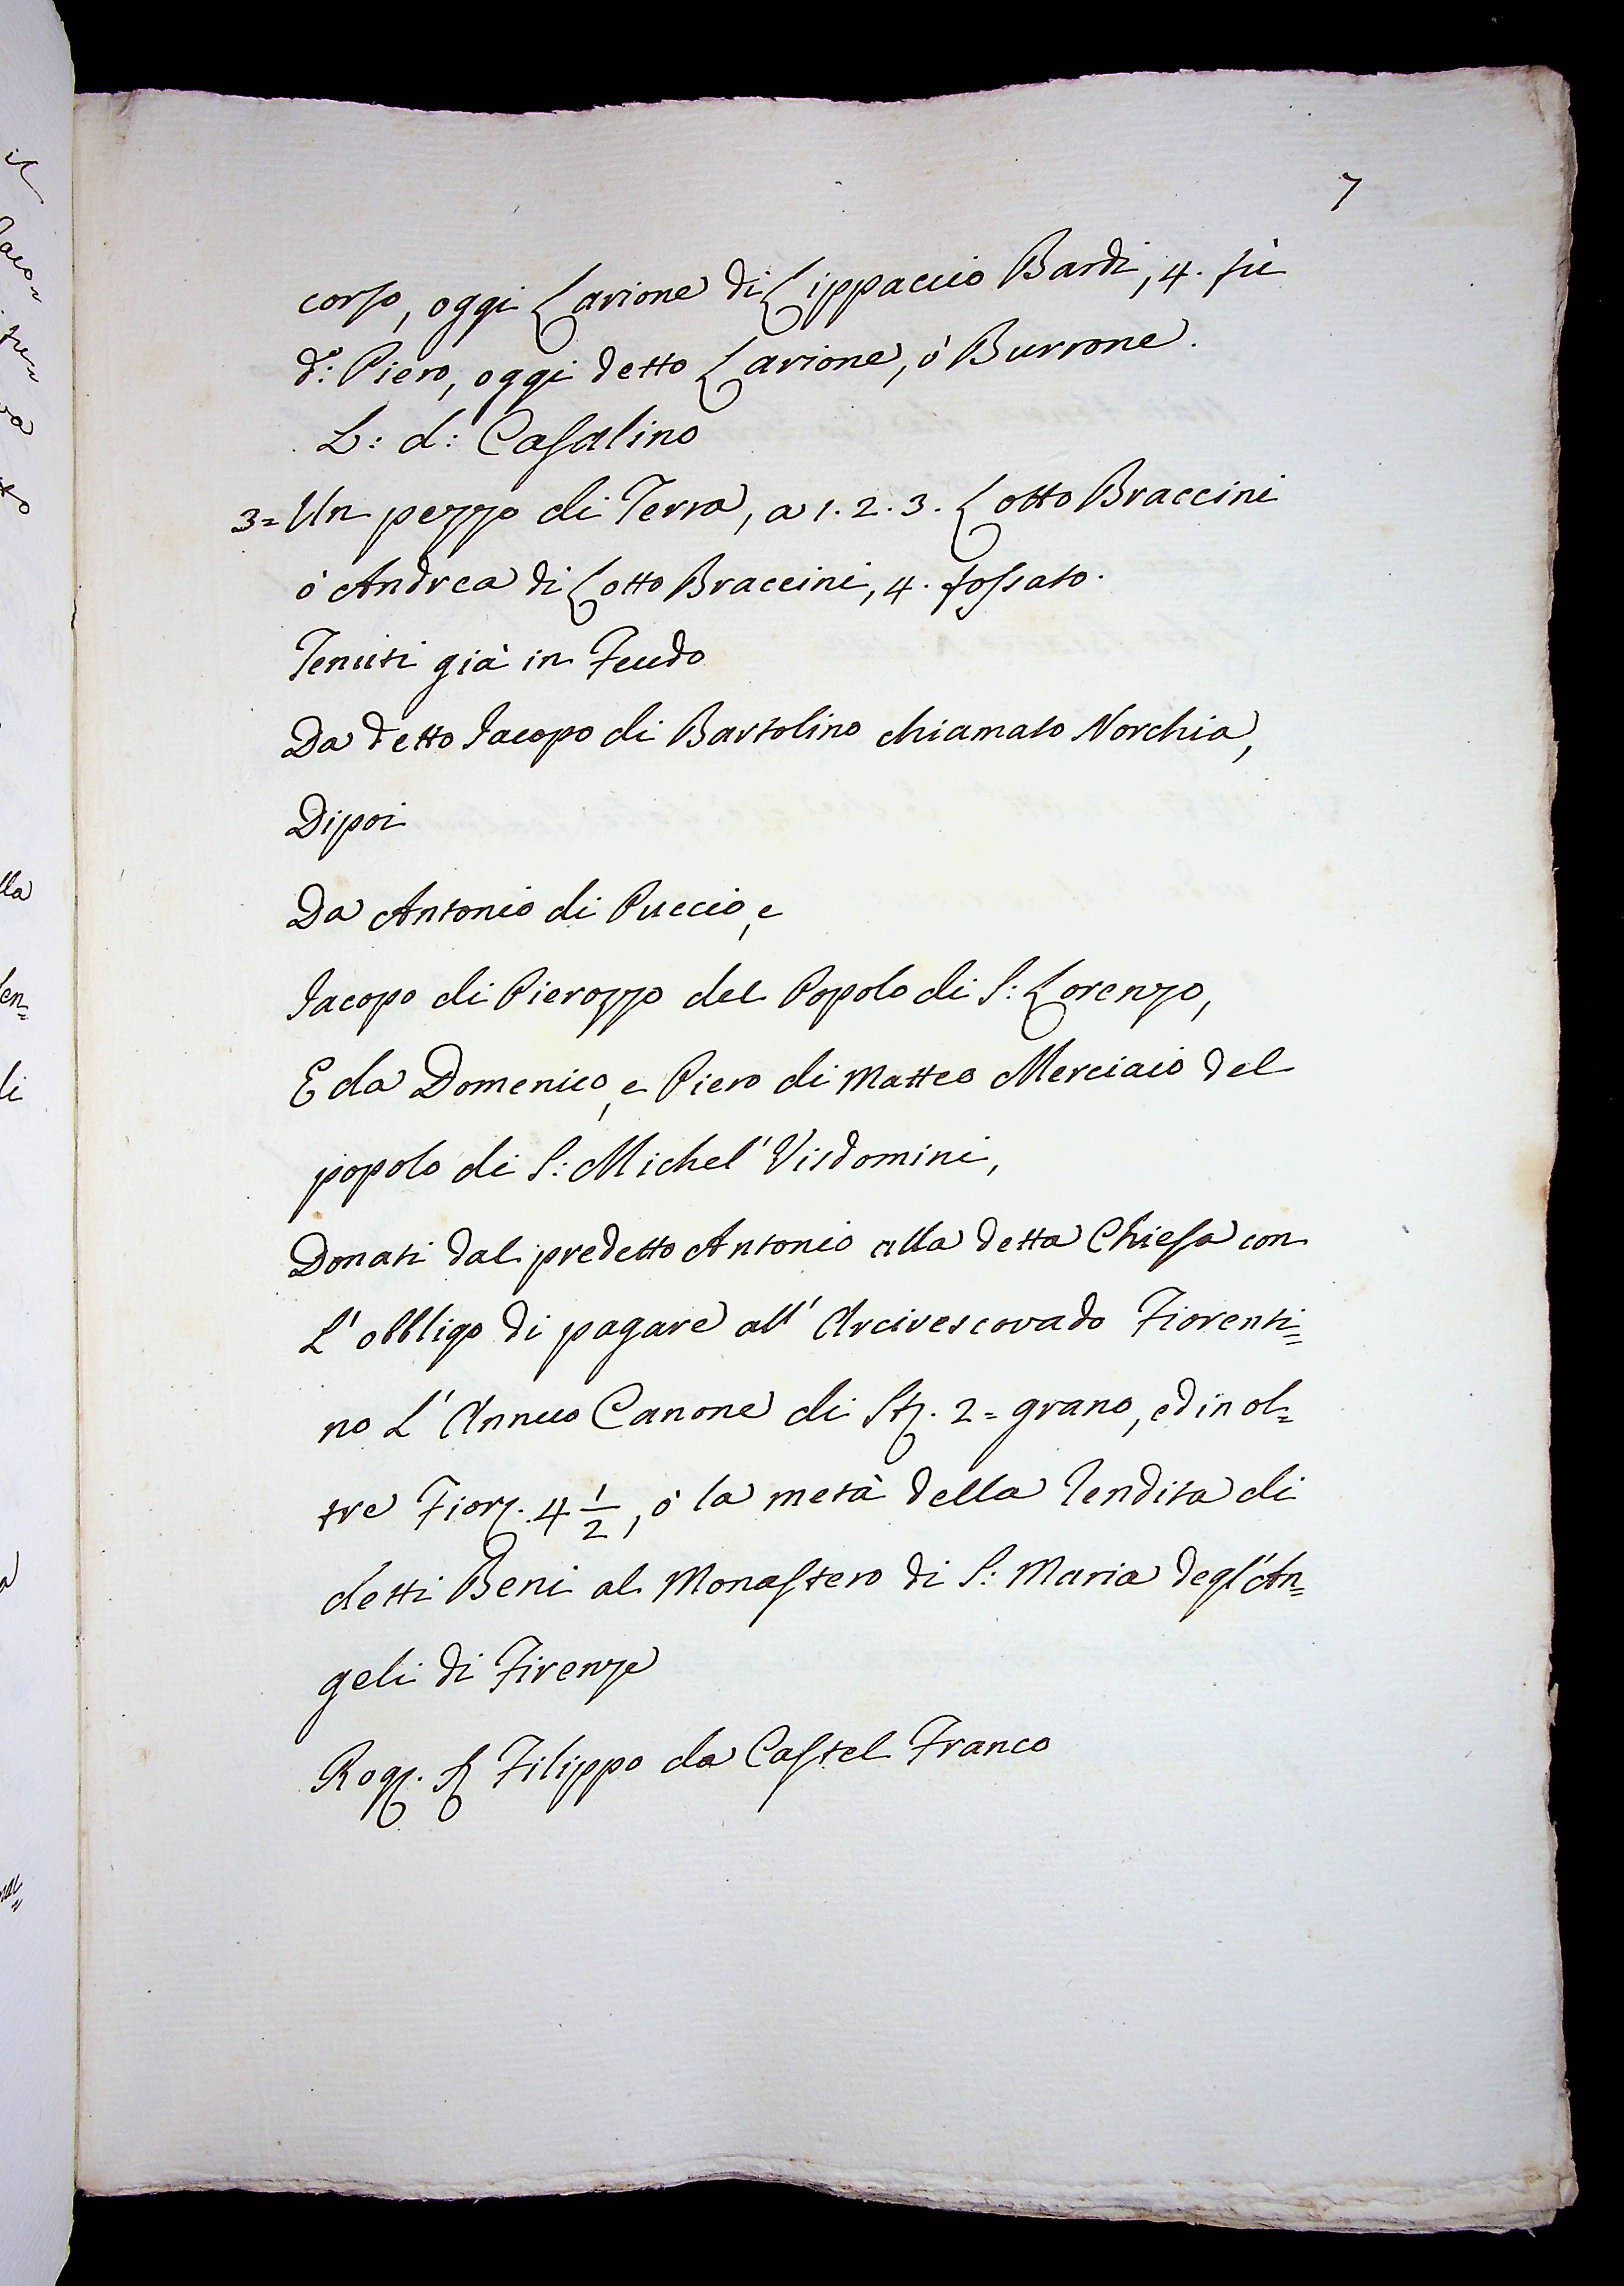 7
corso, oggi Larione di Lippaccio Bardi, 4. fù
d.º Piero, oggi detto Larione, ò Burrone.
L: d: Casalino
3= Un pezzo di Terra, a 1. 2. 3. Lotto Braccini
ò Andrea di Lotto Braccini, 4. fossato.
Tenuti già in Feudo
Da detto Jacopo di Bartolino chiamato Norchia,
Dipoi
Da Antonio di Puccio, e
Jacopo di Pierozzo del Popolo di S: Lorenzo,
E da Domenico, e Piero di Matteo Merciaio del
popolo di S: Michel' Visdomini,
Donati dal predetto Antonio alla detta Chiesa con
L'obbligo di pagare all' Arcivescovado Fiorenti=
no L'Annuo Canone di St. 2= grano, ed in ol=
tre Fior. 4 1/2, ò la metà della rendita di
detti Beni al Monastero di S: Maria degl'An=
geli di Firenze
Rog. S. Filippo da Castel Franco